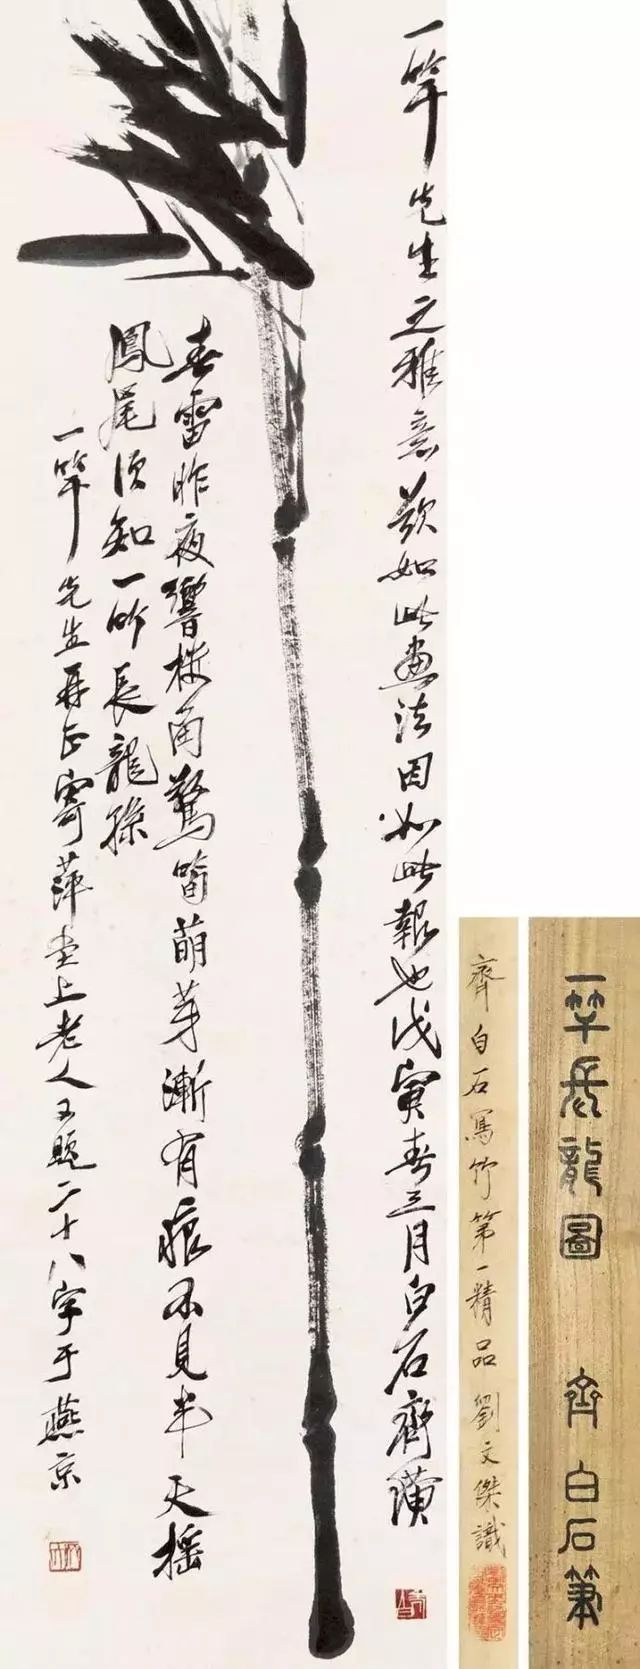 一竿先生之雅意欲如此畫法因如此報也戊寅春三月白石齊璜
春雷昨夜響角驚筍萌芽漸有痕不見半天搖
鳳尾須知一昨長龍孫
一竿先生再正寄萍堂上老人又題二十八字于燕京
一竿長龍圖 齊白石筆
齊白石寫竹第一精品 劉文傑識